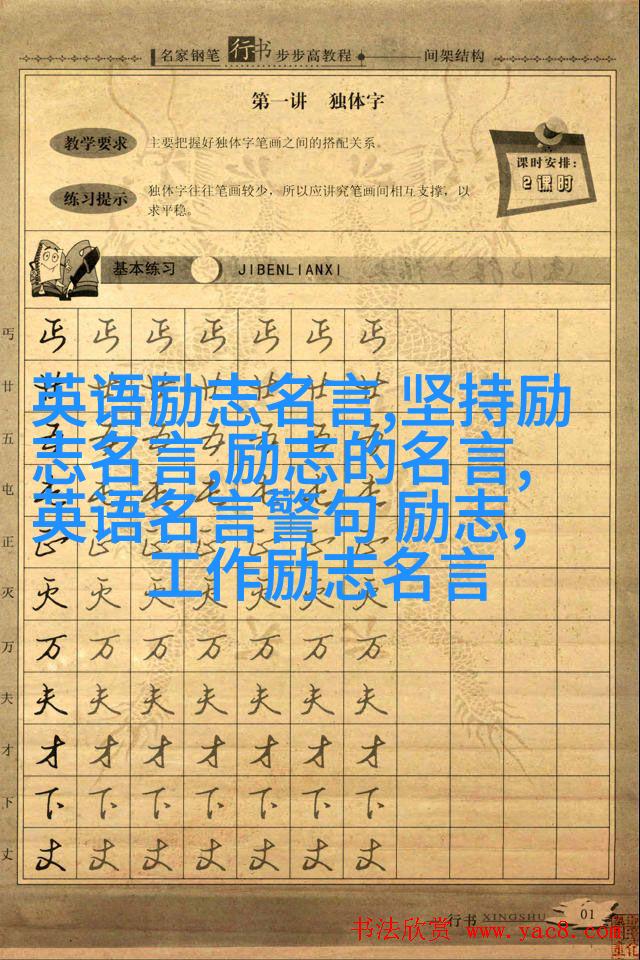 名家钢笔 行书 步步高教程 间架结构
第一讲 独体字
教学要求 主要把握好独体字笔画之间的搭配关系。
练习提示 独体字往往笔画较少，所以应讲究笔画间相互支撑，以
求平稳。
课时安排：
2课时
基本练习 JIBENLIANXI
丐 丐 丐 丐 丐 丐 丐 丐
廿 廿 廿 廿 廿 廿 廿 廿
五 五 五 五 五 五 五 五
屯 屯 屯 屯 屯 屯 屯 屯
正 正 正 正 正 正 正 正
灭 灭 灭 灭 灭 灭 灭 灭
万 万 万 万 万 万 万 万
夫 夫 夫 夫 夫 夫 夫 夫
才 才 才 才 才 才 才 才
下 下 下 下 下 下 下 下
丈 丈 丈 丈 丈 丈 丈 丈
英语励志名言,坚持励
志名言,励志的名言,
英语名言警句 励志,
工作励志名言
行书 XINGSHU 01
书法欣赏 www.yac8.com